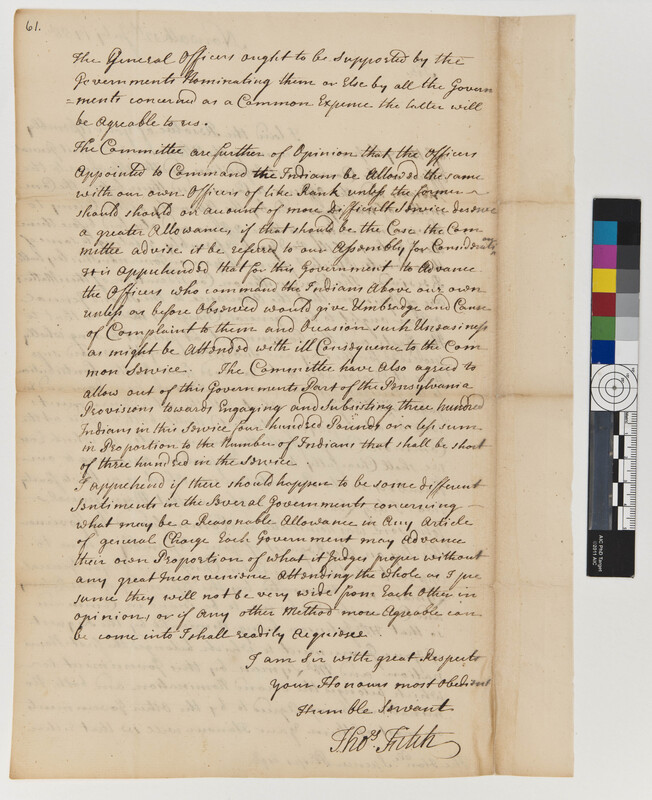 61.
The General Officers ought to be supported by the
Governments Nominating them or Else by all the Govern
=ments concerned as a Common Expence the latter will
be Agreable to us.
The Committee are further of Opinion that the Officers
Appointed to Command the Indians be Allowed the same
with our own Officers of like Rank unless the former
should should on amount of more Difficult Service deserve
a greater Allowance, if that should be the Case the Com
mittee advise it be referred to our Assembly for Consideration
It is apprehended that for this Government to Advance
the Officers who command the Indians Above our own
unless as before Observed would give Umbradge and Cause
of Complaint to them and Occasion such Uneasiness
as might be Attended with ill Consequence to the Com
mon Service. The Committee have Also agreed to
allow out of this Governments Part of the Pensylvania
Provisions towards Engaging and Subsisting three hundred
Indians in this Service four hundred Pounds or a less sum
in Proportion to the Number of Indians that shall be short
of three hundred in the Service
I apprehend if there should happen to be some different
Sentiments in the Several Governments concerning
what may be a Reasonable Allowance in Any Article
of general Charge Each Government may Advance
their own Proportion of what it Judges proper without
any great Inconvenience Attending the whole as I pre
sume they will not be very wide from Each Other in
opinion, or if Any other Method more Agreable can
be come into I shall readily Acquiesce.
I am Sir with great Respects
Your Honours most Obedient
Humble Servant
Thos. Fitch
AIC PhD Target
©2011 AIC